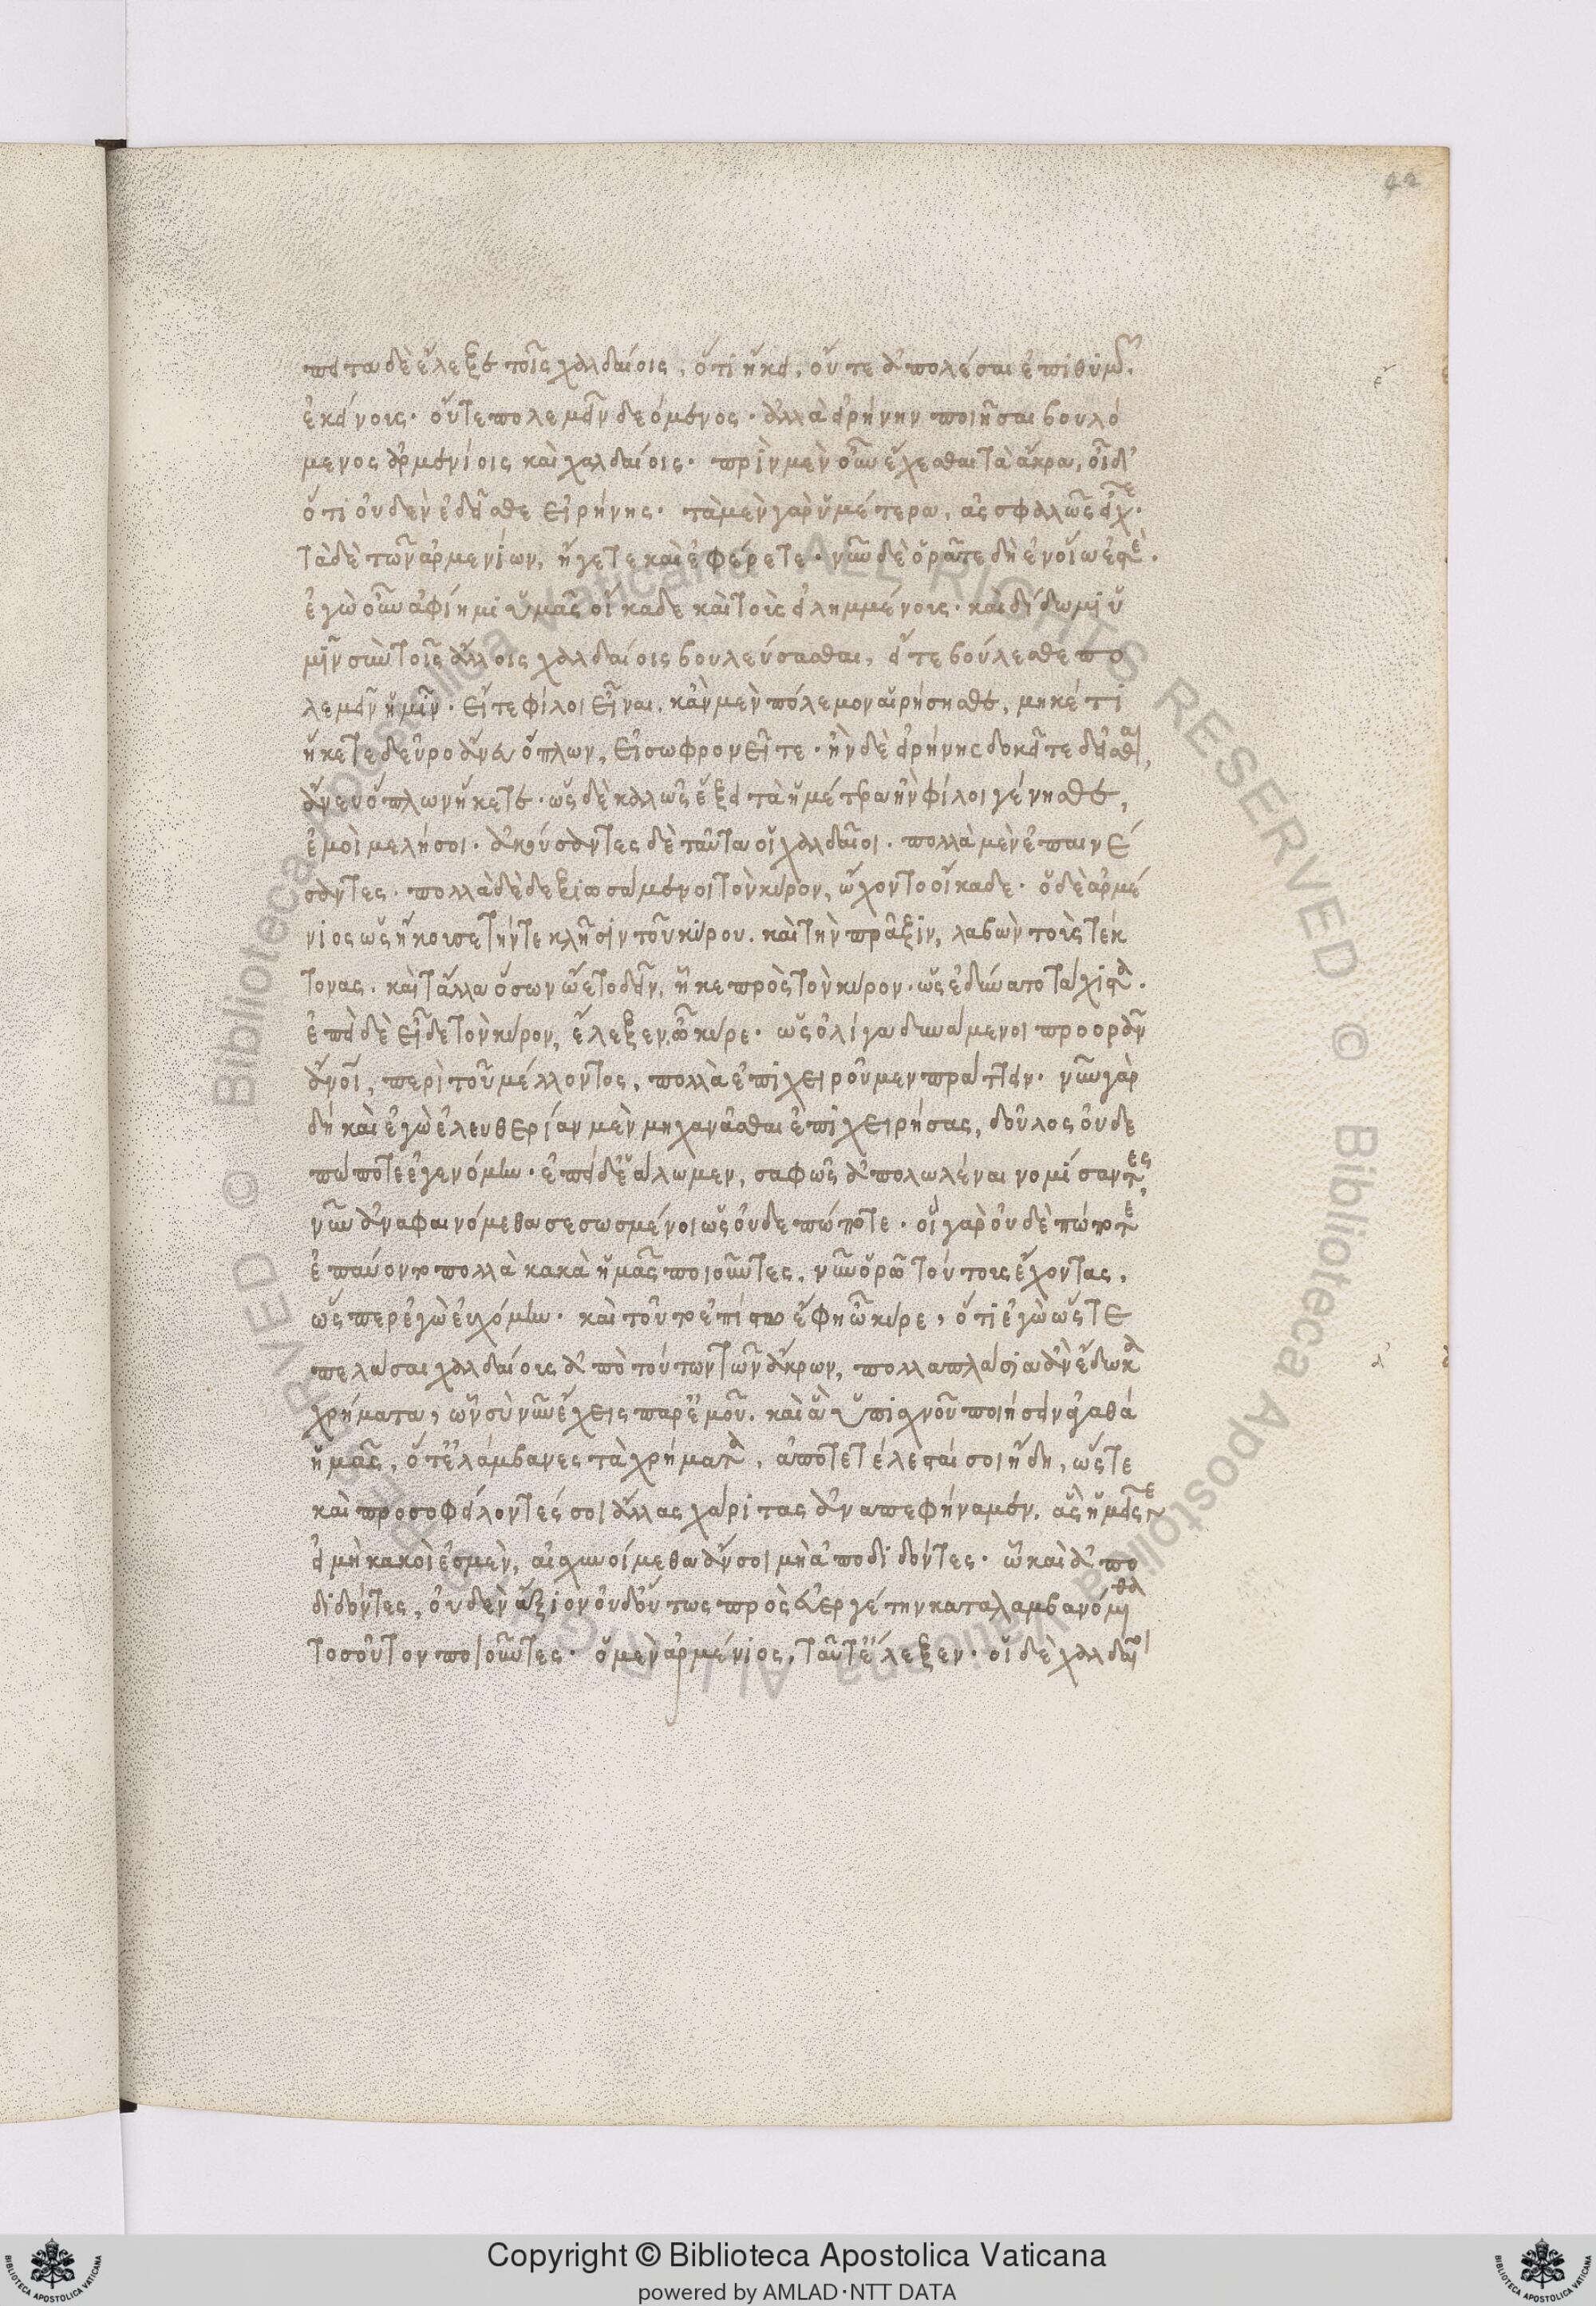 42
πειτα δὲ ἔλεξε τοῖς χαλδαίοις, ὅτι ἥκει, οὔτε ἀπολέσαι ἐπιθυμῶν
ἐκείνους· οὔτε πολεμεῖν δεόμενος· ἀλλὰ εἰρήνην ποιῆσαι βουλό
μενος ἀρμενίοις καὶ χαλδαίοις· πρὶν μὲν οὖν ἔχεσθαι τὰ ἄκρα, οἶδ'
ὅτι οὐδὲν ἐδεῖσθε εἰρήνης· τὰ μὲν γὰρ ὑμέτερα, ἀσφαλῶς εἶχε·
τὰ δὲ τῶν ἀρμενίων, ἤγετε καὶ ἐφέρετε· νῦν δὲ ὁρᾶτε δὴ ἐν οἵω ἐστέ·
ἐγὼ οὖν ἀφίημι ὑμᾶς οἴκαδε καὶ τοὺς εἰλημμένους· καὶ δίδωμι ὑ
μῖν σὺν τοῖς ἄλλοις χαλδαίοις βουλεύσασθαι, εἴτε βούλεσθε πο
λεμεῖν ἡμῖν· εἴτε φίλοι εἶναι. κἂν μὲν πόλεμον αἱρήσησθε, μηκέτι
ἥκετε δεῦρο ἄνευ ὅπλων, εἰ σωφρονεῖτε· ἢν δὲ εἰρήνης δοκεῖτε δεῖσθαι,
ἄνευ ὅπλων ἥκετε· ὡς δὲ καλῶς ἕξει τὰ ὑμέτερα ἢν φίλοι γένησθε,
ἐμοὶ μελήσει· ἀκούσαντες δὲ ταῦτα οἱ χαλδαῖοι· πολλὰ μὲν ἐπαινέ
σαντες· πολλὰ δὲ δεξιωσάμενοι τὸν κῦρον, ὤχοντο οἴκαδε· ὁ δὲ ἀρμέ
νιος ὡς ἤκουσε τήν τε κλῆσιν τοῦ κύρου. καὶ τὴν πρᾶξιν, λαβὼν τοὺς τέκ
τονας· καὶ τἄλλα ὅσων ᾤετο δεῖν, ἧκε πρὸς τὸν κῦρον· ὡς ἐδύνατο τάχιστα·
ἐπεὶ δὲ εἶδε τὸν κῦρον, ἔλεξεν, ὦ κῦρε· ὡς ὀλίγα δυνάμενοι προορᾶν
ἄνοι, περὶ τοῦ μέλλοντος, πολλὰ ἐπιχειροῦμεν πράττειν· νῦν γὰρ
δὴ καὶ ἐγὼ ἐλευθερίαν μὲν μηχανᾶσθαι ἐπιχειρήσας, δοῦλος οὐδε
πώποτε ἐγενόμην· ἐπεὶ δ' ἑάλωμεν, σαφῶς ἀπολωλέναι νομίσαντες,
νῦν ἀναφαινόμεθα σεσωσμένοι ὡς οὐδεπώποτε· οἳ γὰρ οὐδὲπώποτε
ἐπαύοντο πολλὰ κακὰ ἡμᾶς ποιοῦντες, νῦν ὁρῶ τούτους ἔχοντας,
ὥσπερ ἐγὼ εὐχόμην· καὶ τοῦτο ἐπίστω ἔφη ὦ κῦρε, ὅτι ἐγὼ ὥστε
πελάσαι χαλδαίους ἀπὸ τούτων τῶν ἄκρων, πολλαπλάσια ἂν ἔδωκα
χρήματα, ὧν σὺ νῦν ἔχεις παρ' ἐμοῦ. καὶ ἃ ὑπισχνοῦ ποιήσειν ἀγαθὰ
ἡμᾶς, ὅτ' ἐλάμβανες τὰ χρήματα, ἀποτετέλεσταί σοι ἤδη, ὥστε
καὶ προσοφείλοντές σοι ἄλλας χάριτας ἀναπεφήναμεν. ἃς ἡμεῖς γε
εἰ μὴ κακοὶ ἐσμὲν, αἰσχυνοίμεθα ἄν σοι μὴ ἀποδιδόντες· ὧ καὶ ἀπο
διδόντες, οὐδὲν ἄξιον οὐδ' οὕτως πρὸς εὐεργέτην καταλαμβανόμεθα
τοσοῦτον ποιοῦντες· ὁ μὲν ἀρμένιος, ταῦτ' ἔλεξεν· οἱ δὲ χαλδαῖοι
Copyright © Biblioteca Apostolica Vaticana
powered by AMLAD·NTT DATA